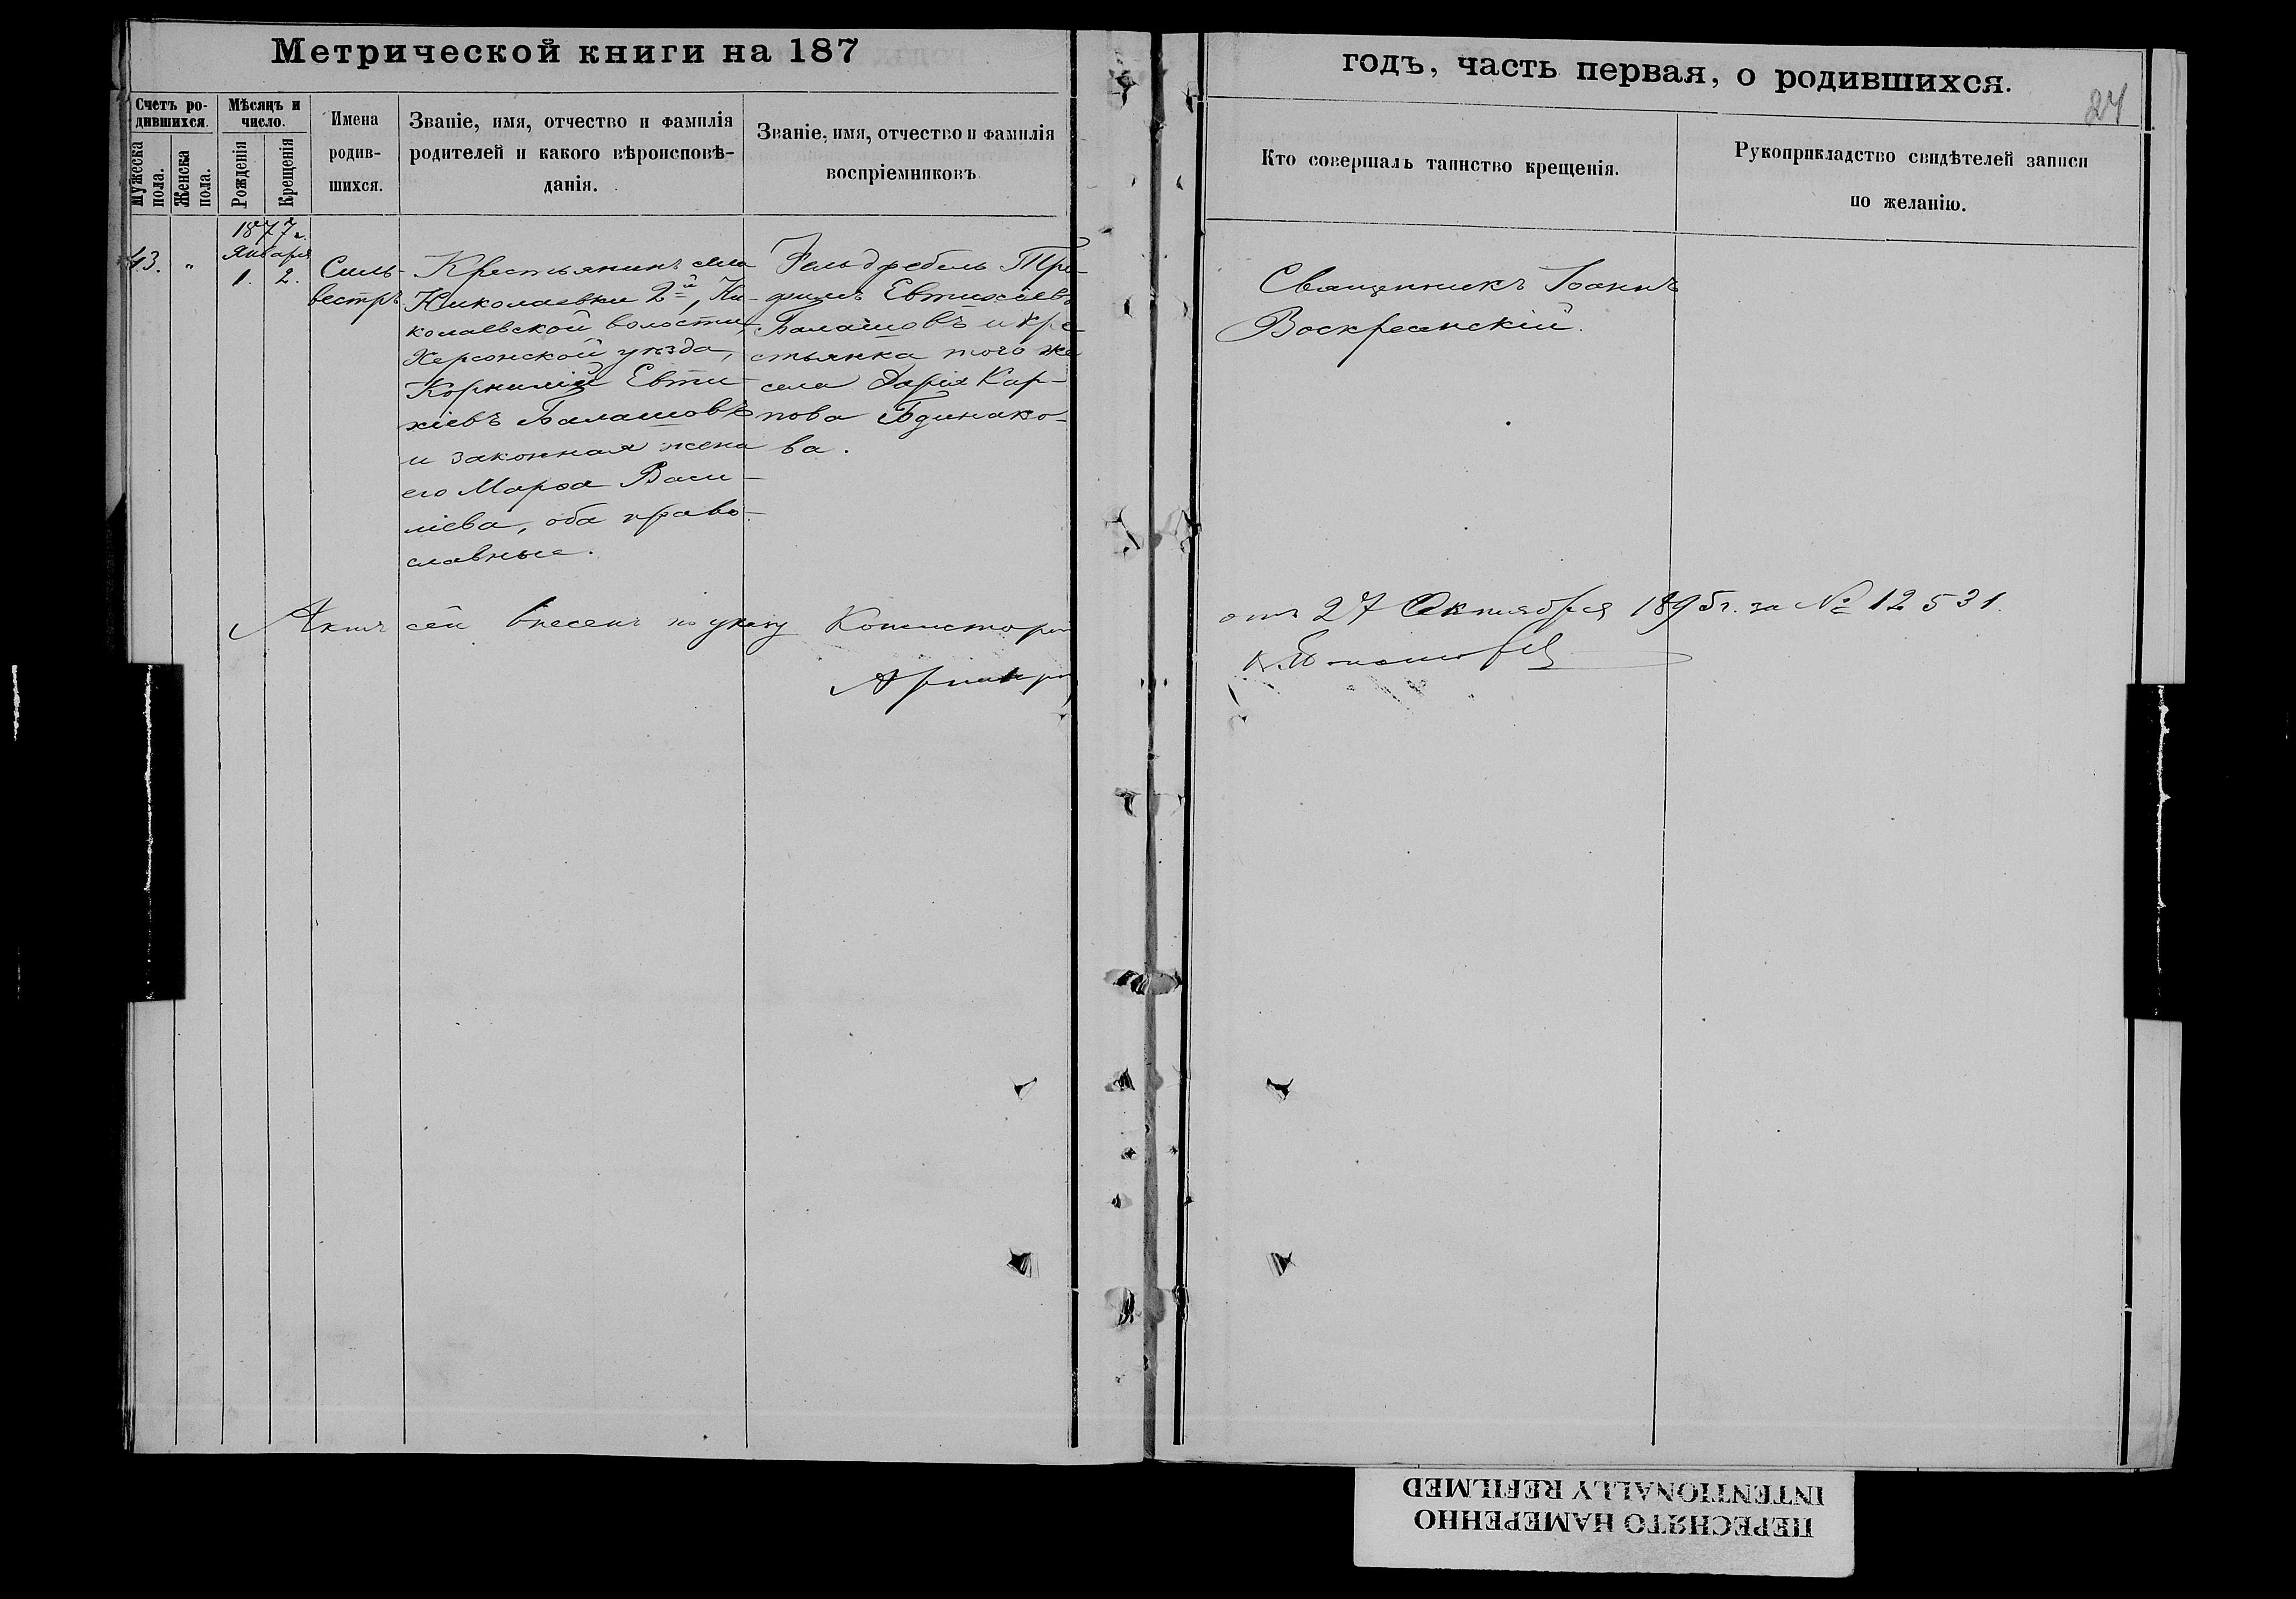 Метрической книги на 187
годъ, часть первая, о родившихся.
27
Счетъ ро-
дившихся.
Мужеска
пола.
Женска
пола.
Мѣсяцъ и
число.
Рожденія
Крещенія
Имена
родив-
шихся.
Званіе, имя, отчество и фамилія
родителей и какого вѣроисповѣ-
данія.
Званіе, имя, отчество и фамилія
воспріемниковъ
Кто совершалъ таинство крещенія.
Рукоприкладство свидѣтелей записи
по желанію.
1877 г.
Января
43. " 1. 2.
Силь-
вестръ
Крестьянинъ села
Николаевки 2й, Ни-
колаевской волости
Херсонской уѣзда,
Корнилій Евти-
хіевъ Балашовъ
и законная жена
его Марѳа Васи-
ліева, оба право-
славные.
Фельдфебель Три-
филъ Евтихіевъ
Балашовъ и кре-
стьянка того же
села Дарія Кар-
пова
ва.
Священникъ Іоаннъ
Воскресенскій.
Актъ сей внесенъ по указу Консисторіи
от 27 Октября 1895 г. за № 12531.
ПЕРЕСНЯТО НАМЕРЕННО
INTENTIONALLY REFILMED